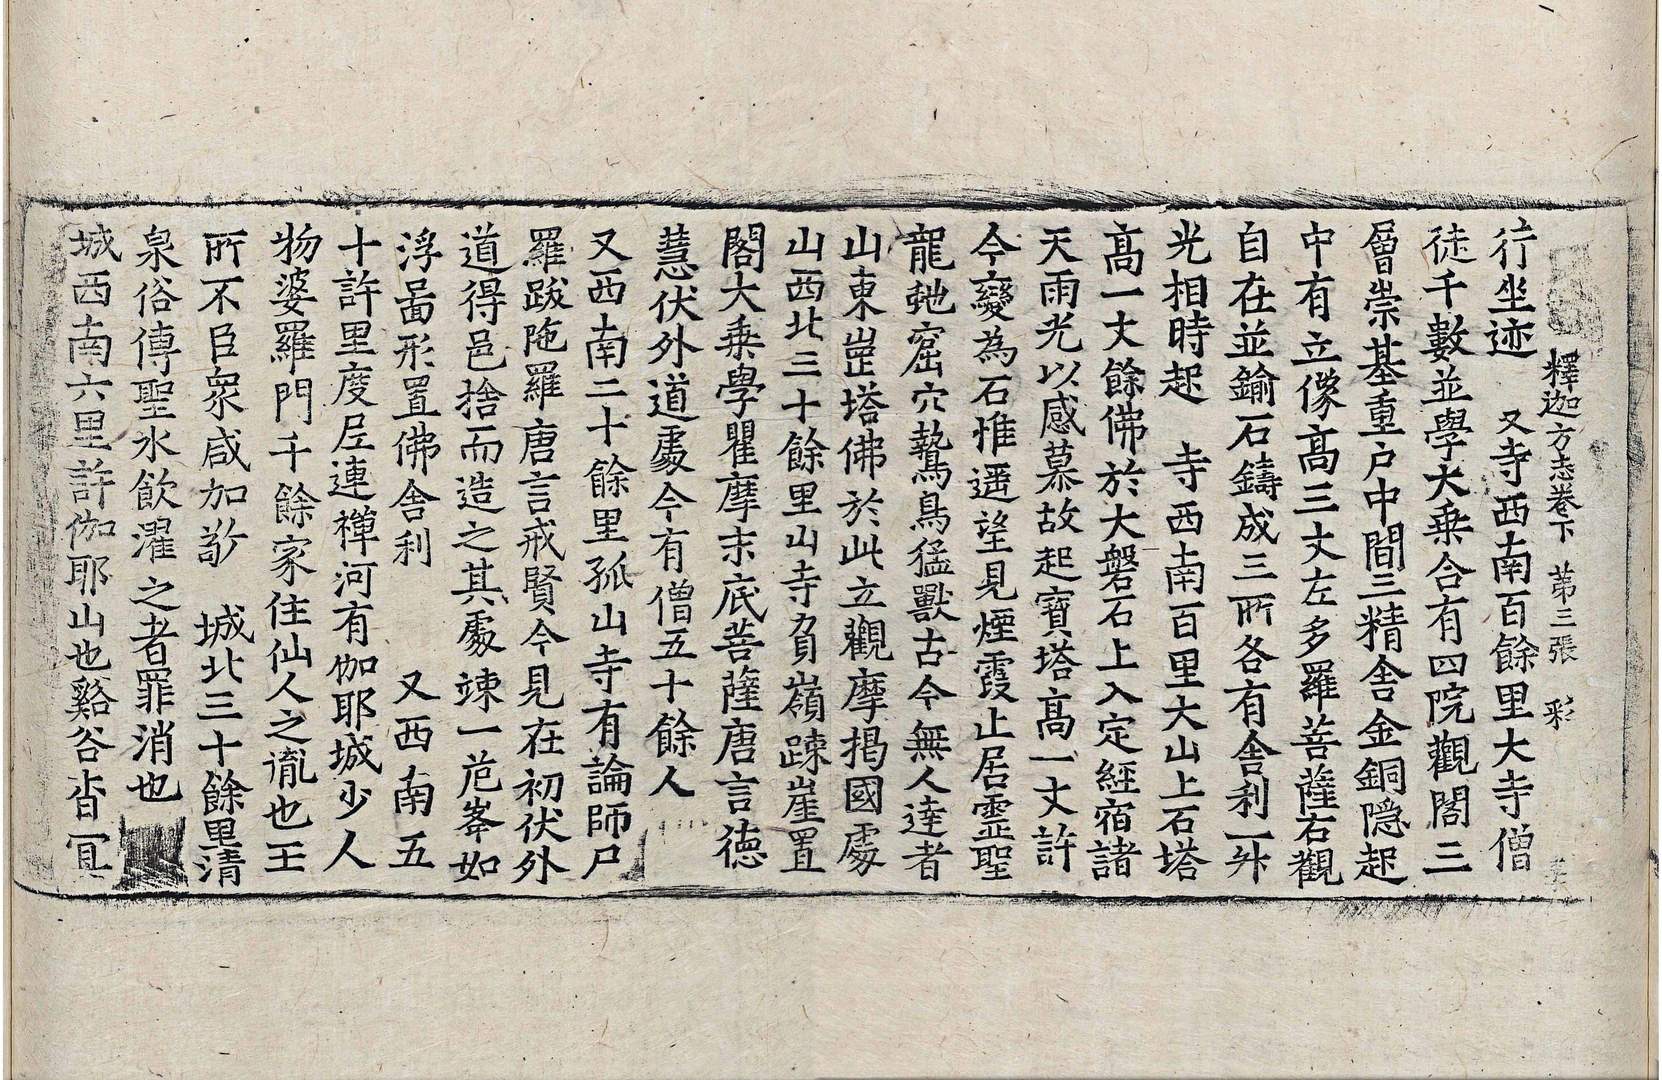 釋迦方志卷下　第三張　彩
行坐迹　又寺西南百餘里大寺僧
徒千數並學大乘合有四院觀閣三
層崇基重戶中間三精舍金銅隱起
中有立像高三丈左多羅菩薩右觀
自在並鍮石鑄成三所各有舍利一升
光相時起　寺西南百里大山上石塔
高一丈餘佛於大磐石上入定經宿諸
天雨光以感慕故起寶塔高一丈許
今變為石惟遥望見煙霞止居靈聖
龍虵窟穴鷙鳥猛獸古今無人達者
山東崗塔佛於此立觀摩揭國處
山西北三十餘里山寺負嶺踈崖置
閣大乘學瞿摩末底菩薩唐言德
慧伏外道處今有僧五十餘人
又西南二十餘里孤山寺有論師尸
羅跋陁羅唐言戒賢今見在初伏外
道得邑捨而造之其處竦一危峯如
浮啚形置佛舍利　又西南五
十許里度尼連禪河有伽耶城少人
物婆羅門千餘家住仙人之胤也王
所不臣衆咸加敬　城北三十餘里清
泉俗傳聖水飲濯之者罪消也
城西南六里許伽耶山也谿谷沓冥